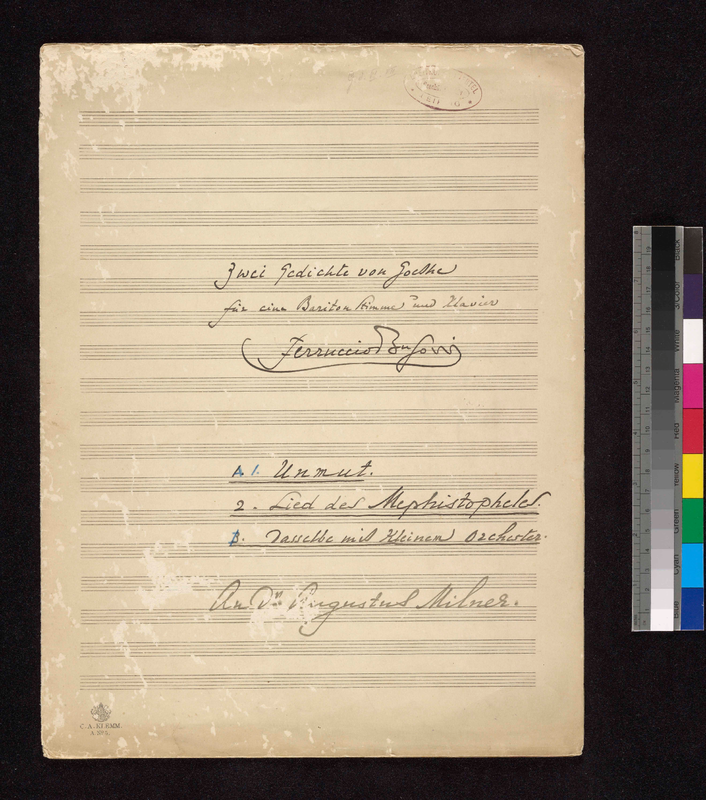 Zwei Gedichte von Goethe
für eine Bariton Stimme und Klavier
Ferruccio Busoni
A. 1. Unmut.
2. Lied des Mephistopheles.
B. Dasselbe mit kleinem Orchester.
An Dr Augustus Milner.
C. A. KLEMM.
Black
3/Color
White
Magenta
Red
Yellow
Green
Cyan
Blue